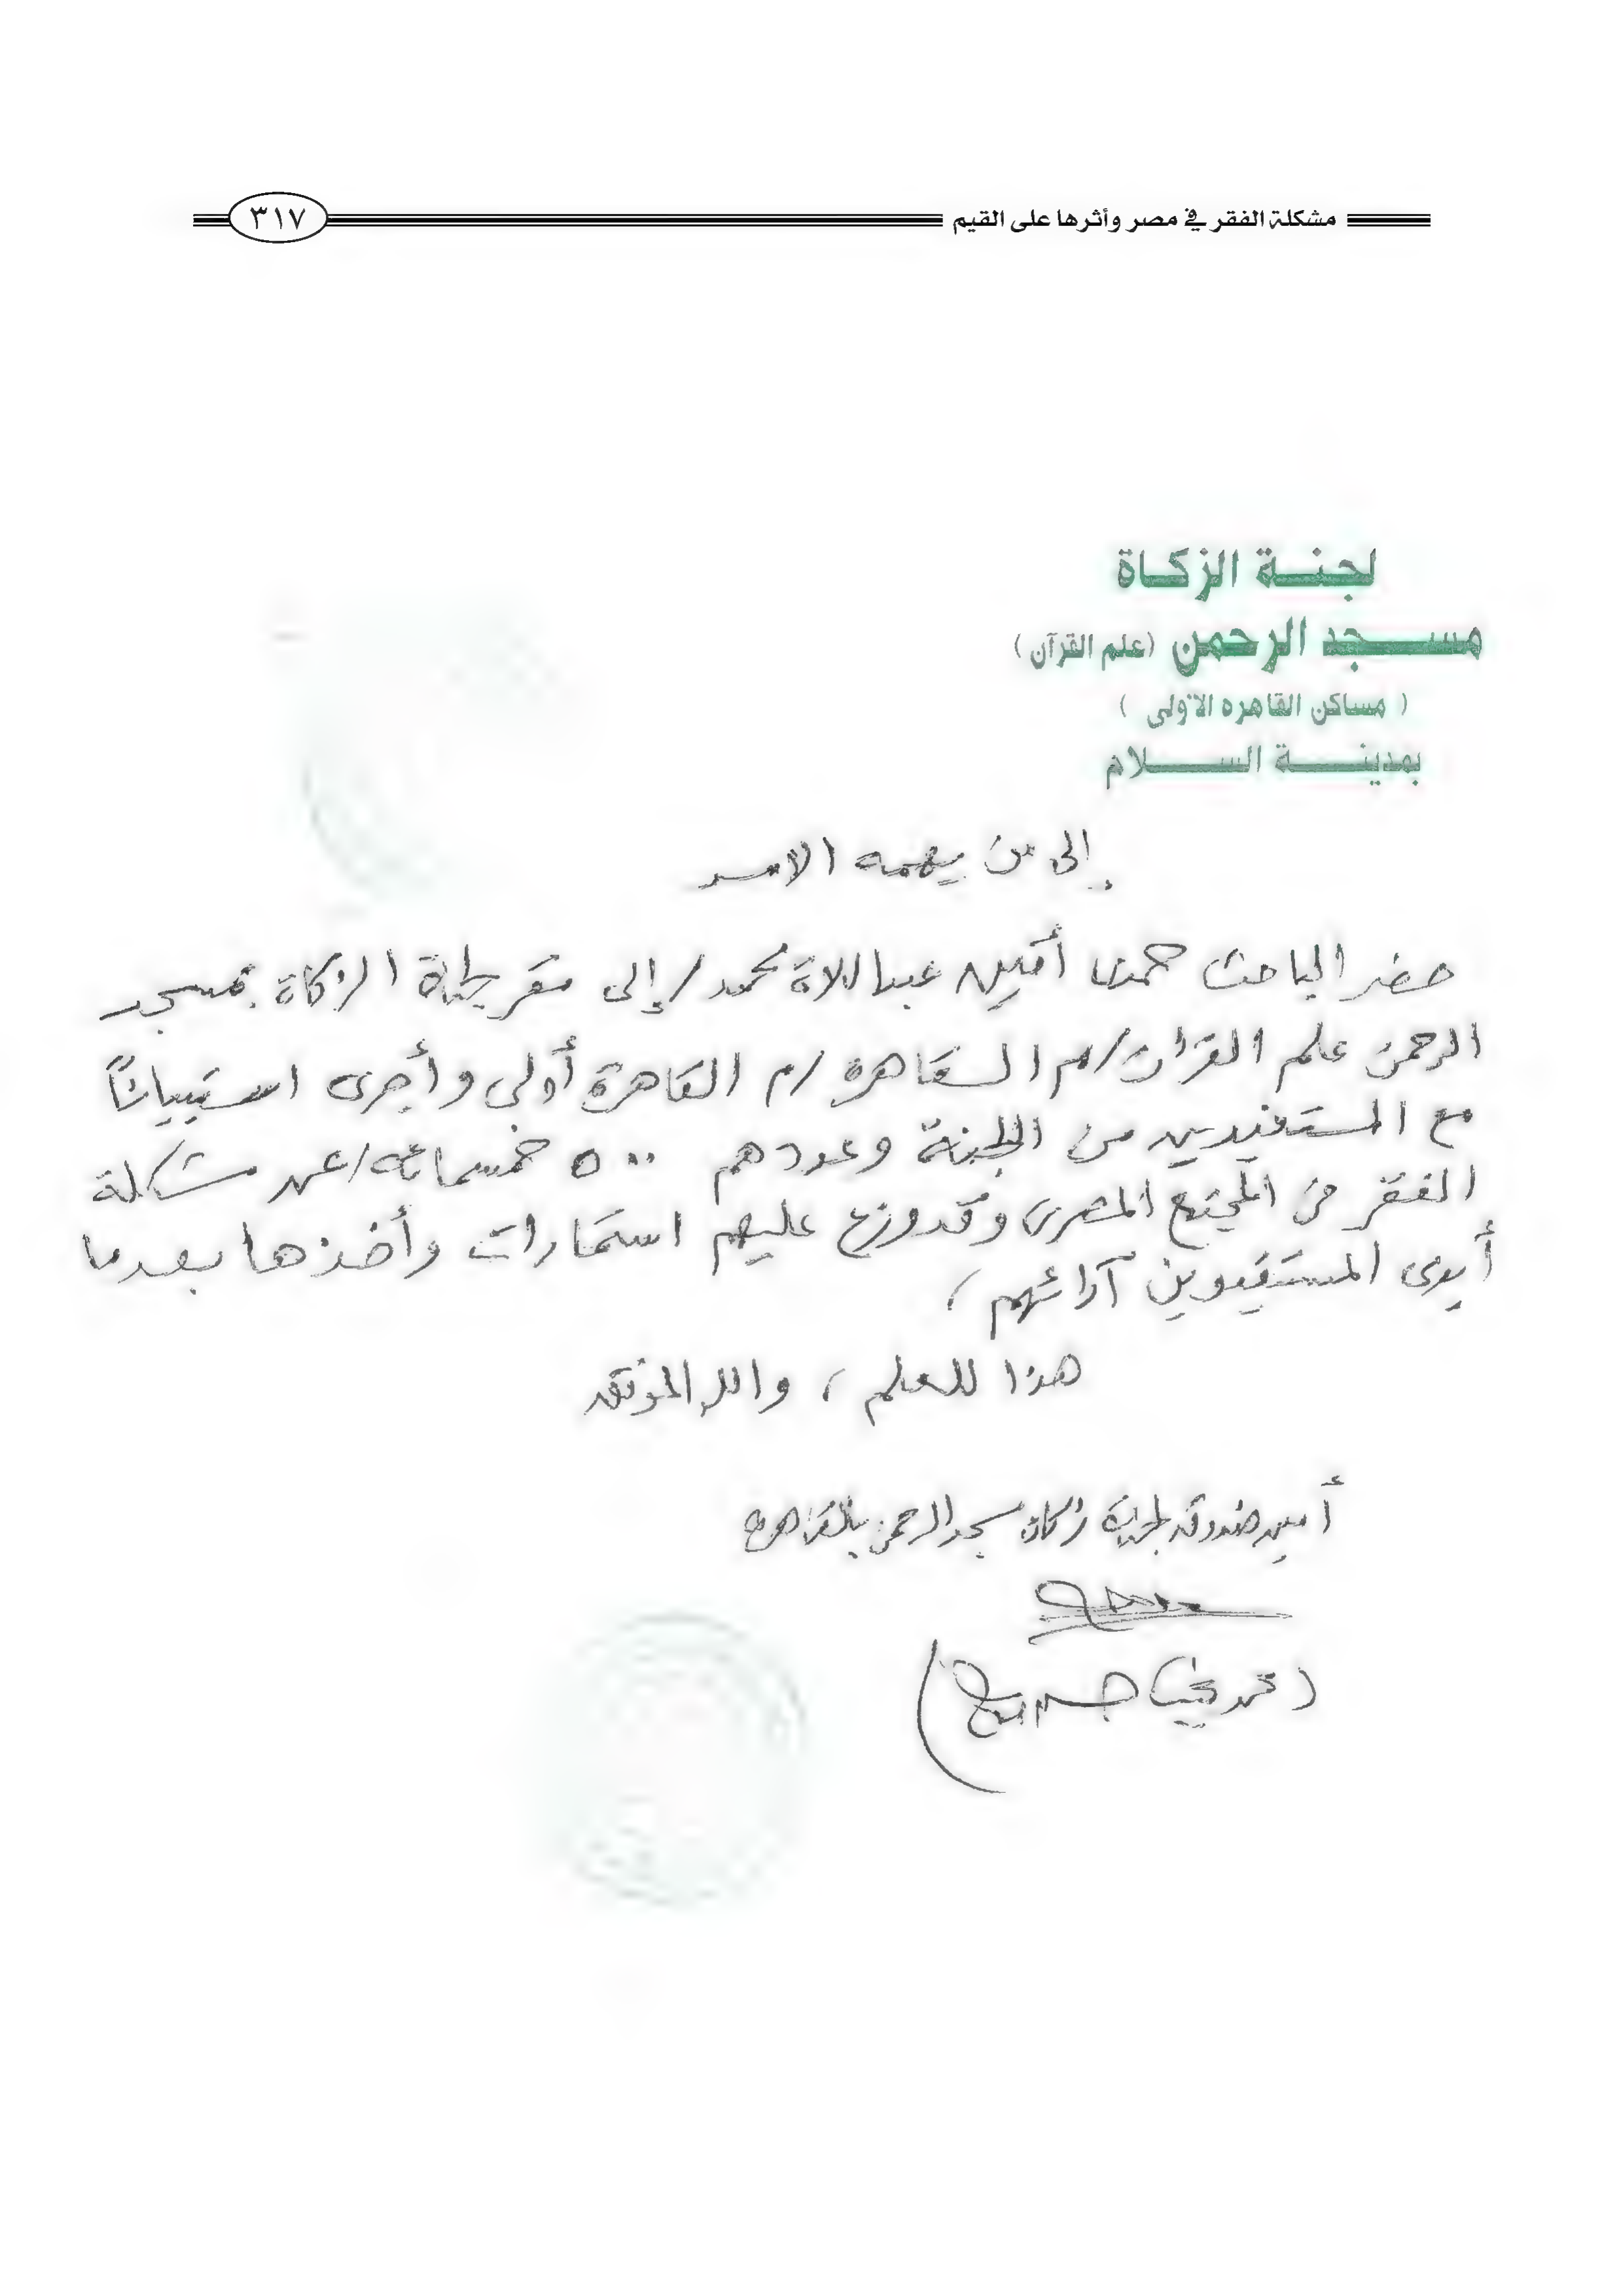 مشكلة الفقر في مصر وأثرها على القيم
٣١٧
لجنة الزكاة
مسجد الرحمن (علم القرآن)
(مساكن القاهره الاولى)
بمدينة السلام
إلى من يهمه الامر
حضر الباحث أمين محمد / إلى مقر لجنة الزكاة بمسجد
الرحمن علم القرآن / م القاهره / م القاهرة أولى وأجرى استبيانًا
مع المستفيدين من اللجنة وعددهم ٥٠٠ خمسمائه / عن مشكلة
الفقر في المجتمع المصرى وقد وزع عليهم استمارات وأخذها بعدما
أبدى المستفيدين آرائهم ،
هذا للعلم ، والله الموفق
أمين صندوق لجنة زكاة مسجد الرحمن بالقاهرة
(محمد